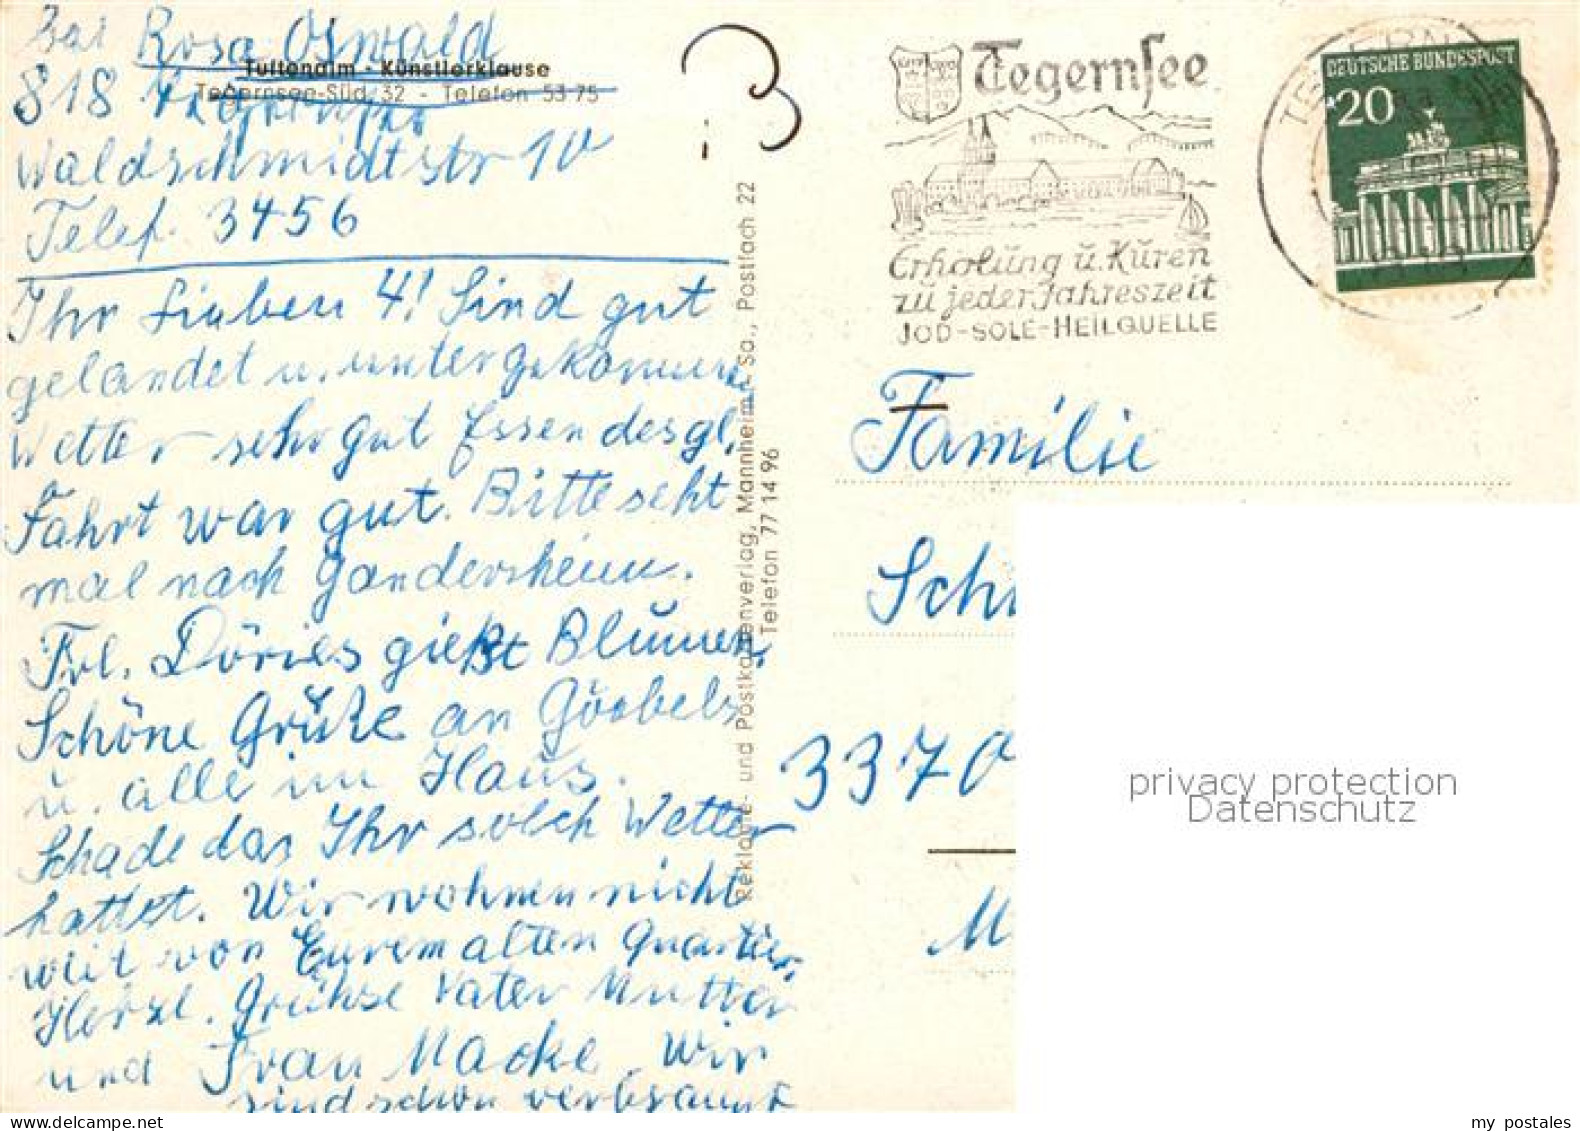 bei Rosa Oswald
Tuftenalm - Künstlerklause
Tegernsee-Süd, 32 - Telefon 53 75
818 Tegernsee
Waldschmidtstr 10
Telef. 3456
Ihr Lieben 4! Sind gut
gelandet u. untergekommen
Wetter sehr gut Essen desgl.
Fahrt war gut. Bitte seht
mal nach Gandersheim.
Frl. Döries gießt Blumen,
Schöne Grüße an
u. alle im Haus.
Schade das Ihr solch Wetter
hattet. Wir wohnen nicht
weit von Eurem alten Quartier,
Herzl. Grühse Vater Mutter
und Frau Macke. Wir
sind schon verbrannt
Reklame- und Postkartenverlag, Mannheim - Sa., Postfach 22
Telefon 77 14 96
Tegernsee
Erholung u. Kuren
zu jeder Jahreszeit
JOD-SOLE-HEILQUELLE
DEUTSCHE BUNDESPOST
20
Familie
Sch
3370
M
privacy protection
Datenschutz
my postales